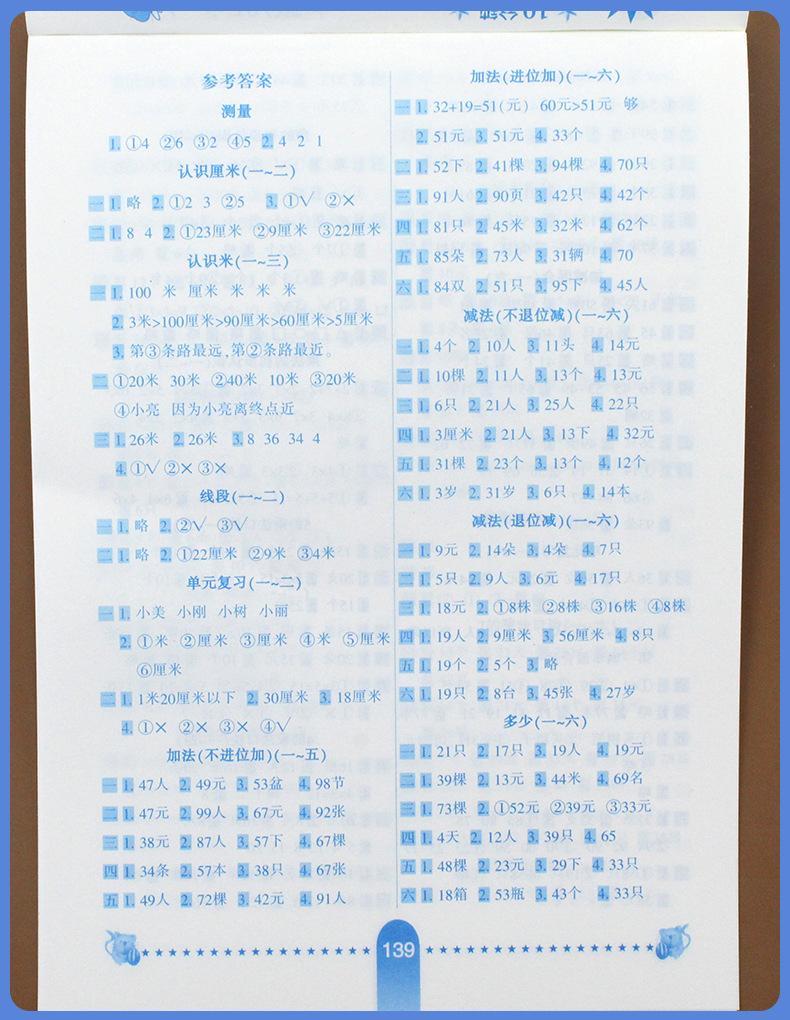 10分钟
参考答案
测量
1. ①4 ②6 ③2 ④5 2. 4 2 1
认识厘米(一~二)
一 1. 略 2. ①2 3 ②5 3. ①√ ②×
二 1. 8 4 2. ①23厘米 ②9厘米 ③22厘米
认识米(一~三)
一 1. 100 米 厘米 米 米 米
2. 3米>100厘米>90厘米>60厘米>5厘米
3. 第③条路最远,第②条路最近。
二 ①20米 30米 ②40米 10米 ③20米
④小亮 因为小亮离终点近
三 1. 26米 2. 26米 3. 8 36 34 4
4. ①√ ②× ③×
线段(一~二)
一 1. 略 2. ②√ ③√
二 1. 略 2. ①22厘米 ②9米 ③4米
单元复习(一~二)
一 1. 小美 小刚 小树 小丽
2. ①米 ②厘米 ③厘米 ④米 ⑤厘米
⑥厘米
二 1. 1米20厘米以下 2. 30厘米 3. 18厘米
4. ①× ②× ③× ④√
加法(不进位加)(一~五)
一 1. 47人 2. 49元 3. 53盆 4. 98节
二 1. 47元 2. 99人 3. 67元 4. 92张
三 1. 38元 2. 87人 3. 57下 4. 67棵
四 1. 34条 2. 57本 3. 38只 4. 67张
五 1. 49人 2. 72棵 3. 42元 4. 91人
加法(进位加)(一~六)
一 1. 32+19=51(元) 60元>51元 够
2. 51元 3. 51元 4. 33个
二 1. 52下 2. 41棵 3. 94棵 4. 70只
三 1. 91人 2. 90页 3. 42只 4. 42个
四 1. 81只 2. 45米 3. 32米 4. 62个
五 1. 85朵 2. 73人 3. 31辆 4. 70
六 1. 84双 2. 51只 3. 95下 4. 45人
减法(不退位减)(一~六)
一 1. 4个 2. 10人 3. 11头 4. 14元
二 1. 10棵 2. 11人 3. 13个 4. 13元
三 1. 6只 2. 21人 3. 25人 4. 22只
四 1. 3厘米 2. 21人 3. 13下 4. 32元
五 1. 31棵 2. 23个 3. 13个 4. 12个
六 1. 3岁 2. 31岁 3. 6只 4. 14本
减法(退位减)(一~六)
一 1. 9元 2. 14朵 3. 4朵 4. 7只
二 1. 5只 2. 9人 3. 6元 4. 17只
三 1. 18元 2. ①8株 ②8株 ③16株 ④8株
四 1. 19人 2. 9厘米 3. 56厘米 4. 8只
五 1. 19个 2. 5个 3. 略
六 1. 19只 2. 8台 3. 45张 4. 27岁
多少(一~六)
一 1. 21只 2. 17只 3. 19人 4. 19元
二 1. 39棵 2. 13元 3. 44米 4. 69名
三 1. 73棵 2. ①52元 ②39元 ③33元
四 1. 4天 2. 12人 3. 39只 4. 65
五 1. 48棵 2. 23元 3. 29下 4. 33只
六 1. 18箱 2. 53瓶 3. 43个 4. 33只
139